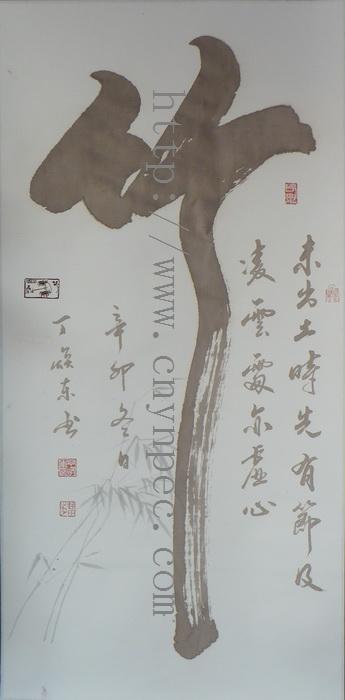 竹
未出土時先有節及
凌雲處亦虛心
辛卯冬日
丁焕东书
http://www.chynpec.com